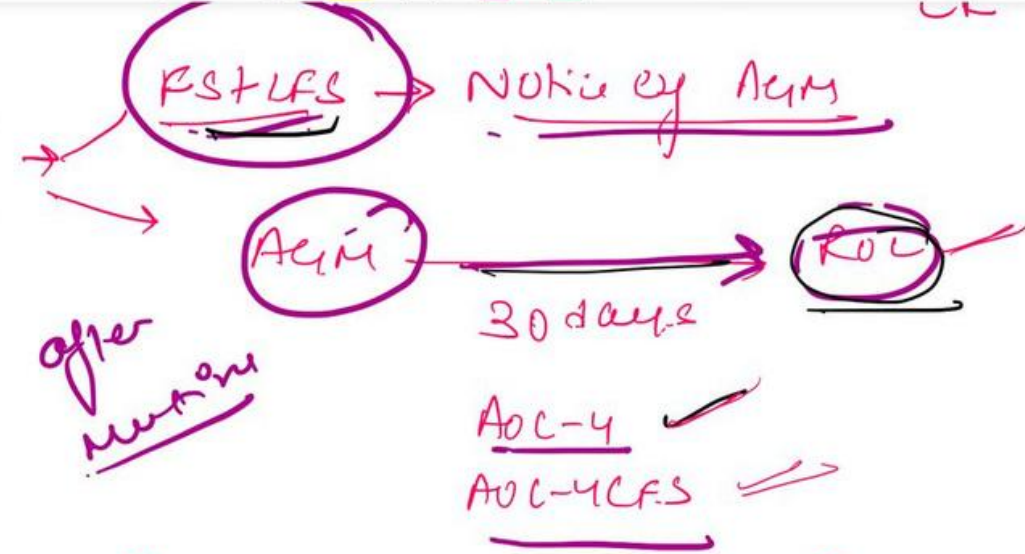 FS+CFS → Notice of AGM
AGM → ROC
30 days
after
AOC-4 ✓
AOC-4CFS